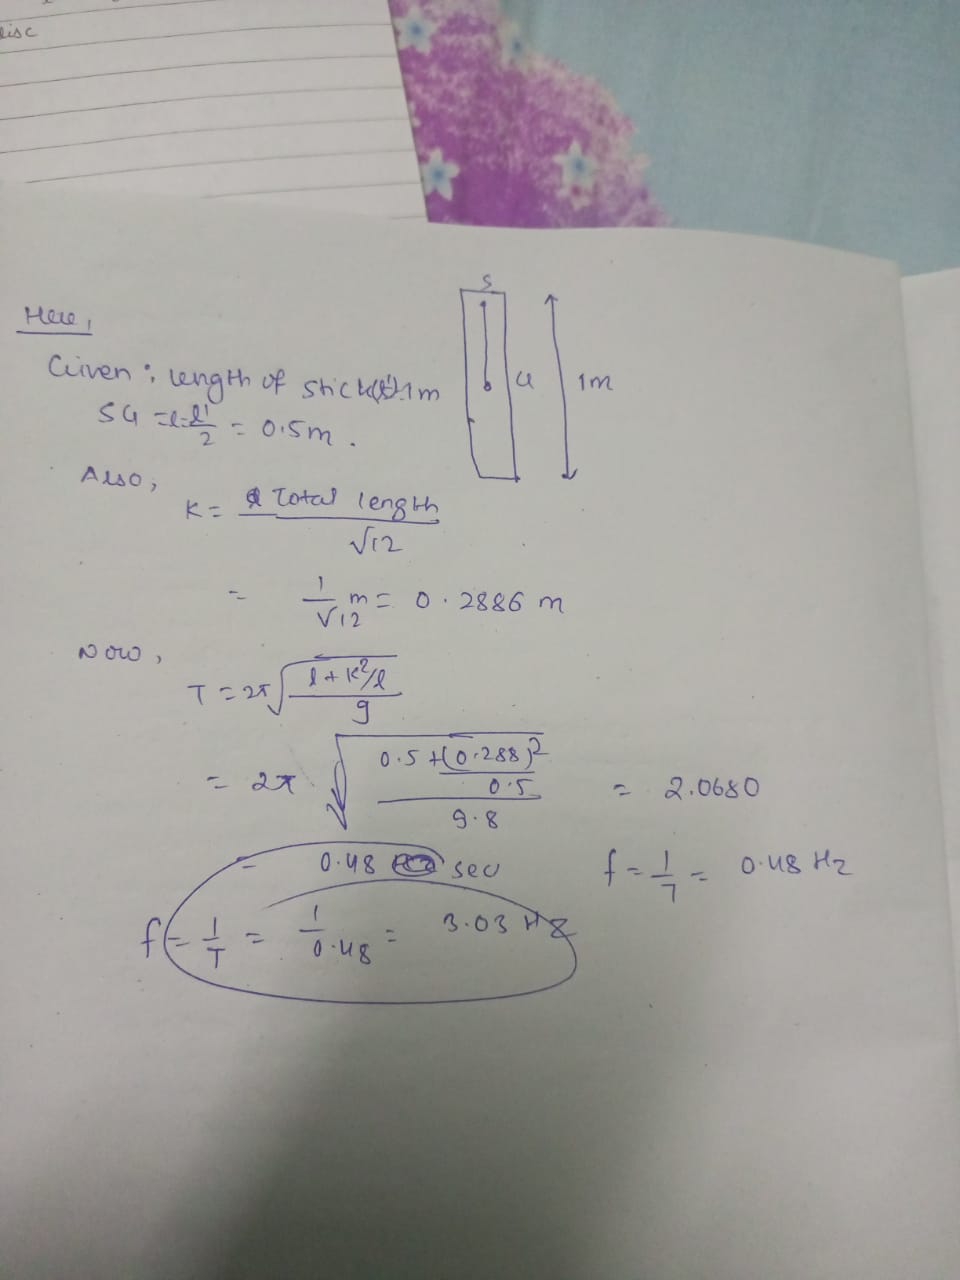 disc
S
Here,
Given: length of stick(l')=1m
G
1m
SG = l = l'/2 = 0.5m.
Also,
K = Total length / √12
= 1/√12 m = 0.2886 m
Now,
T = 2π √((l + k²/l) / g)
= 2π √((0.5 + (0.288)²/0.5) / 9.8) = 2.0680
= 0.48 sec
f = 1/T = 0.48 Hz
f = 1/T = 1/0.48 = 3.03 Hz